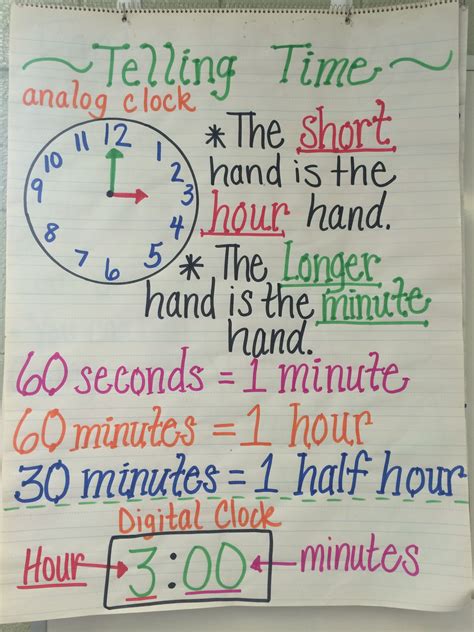 ~Telling Time~
analog clock
12
1
2
3
4
5
6
7
8
9
10
11
*The short
hand is the
hour hand.
* The Longer
hand is the minute
hand.
60 seconds = 1 minute
60 minutes = 1 hour
30 minutes = 1 half hour
Digital Clock
Hour → 3:00 ← minutes